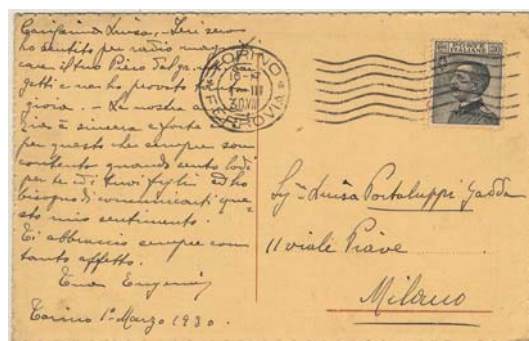 Carissima Luisa, - Ieri sera
ho sentito per radio
care il tuo Piero dal
getti e ne ho provato
gioia. - La nostra
zia è sincera e forte
per questo che sempre son
contento quando sento lodi
per te e di tuoi figli ed ho
bisogno di comunicarti que-
sto mio sentimento.
Ti abbraccio sempre con
tanto affetto.
Tuo Eugenio
Torino 1° Marzo 1930.
TORINO
FERROVIA
Sg.ra Luisa Portaluppi Gadda
11 viale Piave
Milano